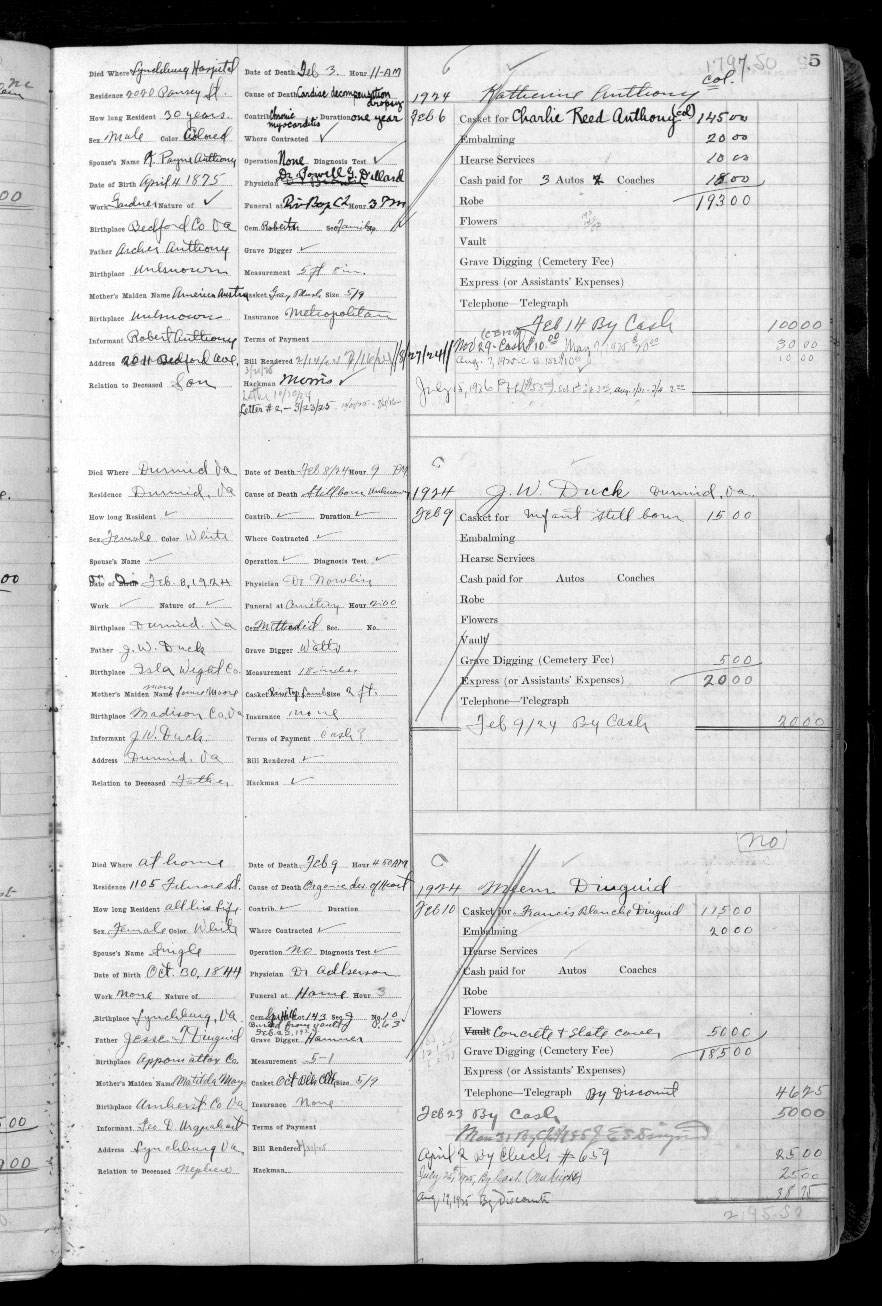 1797.50 5
Died Where Lynchburg Hospital Date of Death Feb 3. Hour 11-AM
Residence 2020 Pansey St. Cause of Death Cardiac decompensation dropsy
How long Resident 30 years. Contrib. Chronic myocarditis Duration one year
Sex Male Color Colored Where Contracted ✓
Spouse's Name K. Payne Anthony Operation None Diagnosis Test ✓
Date of Birth April 4 1875 Physician Dr. Powell G. Dillard
Work Gardner Nature of ✓ Funeral at Riv Bap Ch Hour 3 PM
Birthplace Bedford Co Va Cem. Roberts Sec. Family
Father Archer Anthony Grave Digger ✓
Birthplace Unknown Measurement 5 ft 8 in.
Mother's Maiden Name America Casket Gray Plush Size 5/9
Birthplace Unknown Insurance Metropolitan
Informant Robert Anthony Terms of Payment
Address 2011 Bedford Ave. Bill Rendered 2/14/24
3/20/25
Relation to Deceased Son Hackman Morris ✓
Letter 10/20/24
Letter #2 - 3/23/25
1924 Katherine Anthony col.
Feb 6 Casket for Charlie Reed Anthony (col) 145 00
Embalming 20 00
Hearse Services 10 00
Cash paid for 3 Autos Coaches 18 00
Robe 193 00
Flowers
Vault
Grave Digging (Cemetery Fee)
Express (or Assistants' Expenses)
Telephone—Telegraph
Feb 14 By Cash 100 00
Nov 29 - Cash $10 00 May 1925 $20 00 30 00
Aug. 7, 1925 C.B. 152 $10 00 10 00
July 15, 1926
Died Where Durmid Va Date of Death Feb 8/24 Hour 9 PM
Residence Durmid, Va Cause of Death Stillborn Unknown
How long Resident ✓ Contrib. ✓ Duration ✓
Sex Female Color White Where Contracted ✓
Spouse's Name ✓ Operation ✓ Diagnosis Test ✓
Date of Birth Feb. 8, 1924 Physician Dr Nowlin
Work ✓ Nature of ✓ Funeral at Cemetery Hour 2:00
Birthplace Durmid. Va Cem. Methodist Sec. No.
Father J. W. Duck Grave Digger Watts
Birthplace Isle Wight Co. Measurement 18 inches
Mother's Maiden Name Mary Moore Casket Size 2 ft.
Birthplace Madison Co. Va Insurance none
Informant J. W. Duck Terms of Payment Cash
Address Durmid. Va Bill Rendered ✓
Relation to Deceased Father Hackman ✓
1924 J. W. Duck Durmid, Va.
Feb 9 Casket for Infant still born 15 00
Embalming
Hearse Services
Cash paid for Autos Coaches
Robe
Flowers
Vault
Grave Digging (Cemetery Fee) 5 00
Express (or Assistants' Expenses) 20 00
Telephone—Telegraph
Feb 9/24 By Cash 20 00
Died Where at home Date of Death Feb 9 Hour 4 50 AM
Residence 1105 Filmore St. Cause of Death Organic dis. of Heart
How long Resident all his life Contrib. ✓ Duration
Sex Female Color White Where Contracted ✓
Spouse's Name Single Operation No Diagnosis Test ✓
Date of Birth Oct. 30, 1844 Physician Dr Adkerson
Work None Nature of Funeral at Home Hour 3
Birthplace Lynchburg, Va. Cem. Sp Hill Lot 143 Sec. J No. 10
Buried from vault P. 63
Father Jesse T Diuguid Grave Digger Hamner
Birthplace Appomattox Co Measurement 5-1
Mother's Maiden Name Matilda May Casket Oct Size 5/9
Birthplace Amherst Co Va Insurance None
Informant Geo D. Urquhart Terms of Payment
Address Lynchburg Va Bill Rendered
Relation to Deceased nephew Hackman
No
1924 Diuguid
Feb 10 Casket for Francis Blanche Diuguid 115 00
Embalming 20 00
Hearse Services
Cash paid for Autos Coaches
Robe
Flowers
Vault Concrete & Slate cover 50 00
Grave Digging (Cemetery Fee) 185 00
Express (or Assistants' Expenses)
Telephone—Telegraph By Discount 46 25
Feb 23 By Cash 50 00
April 2 By Check #659 25 00
July 1925, By Cash 25 00
Aug 19, 1925 By Discount 38 75